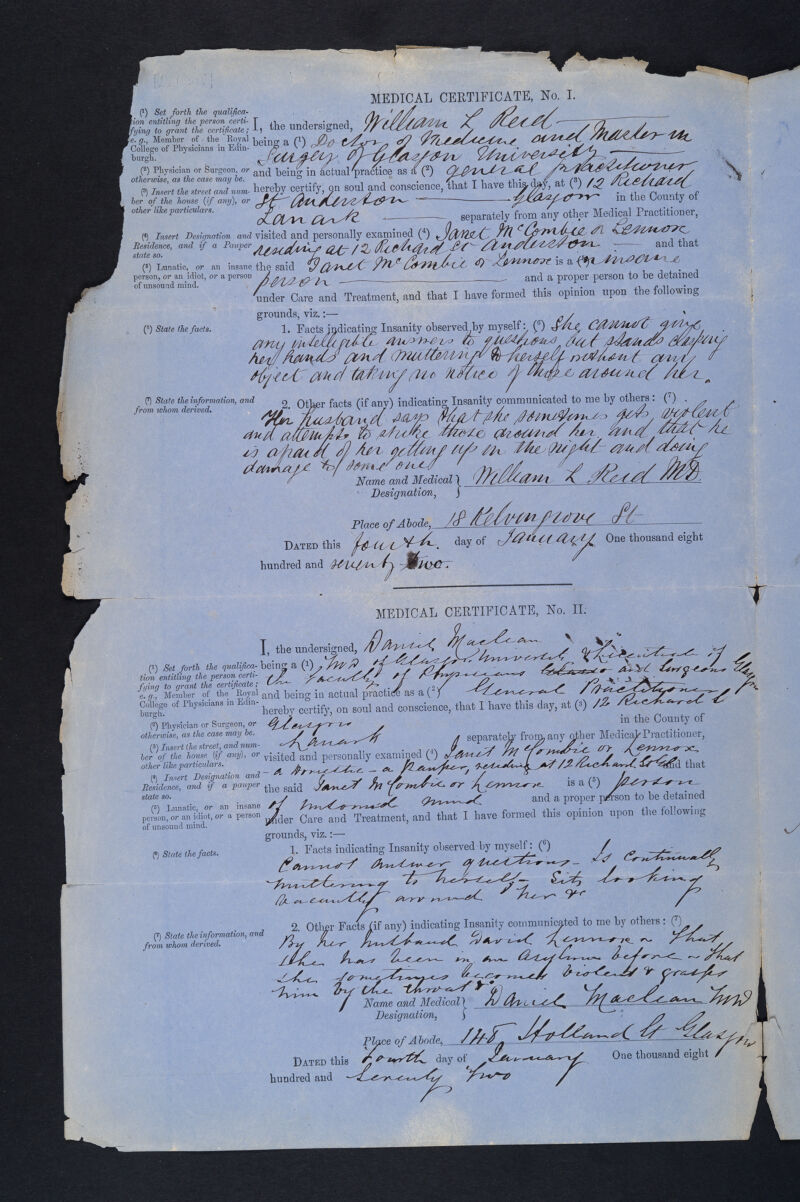 MEDICAL CERTIFICATE, No. I.
(¹) Set forth the qualifica-
tion entitling the person certi-
fying to grant the certificate;
e. g., Member of the Royal
College of Physicians in Edin-
burgh.
(²) Physician or Surgeon, or
otherwise, as the case may be.
(³) Insert the street and num-
ber of the house (if any), or
other like particulars.
(⁴) Insert Designation and
Residence, and if a Pauper
state so.
(⁵) Lunatic, or an insane
person, or an idiot, or a person
of unsound mind.
(⁶) State the facts.
(⁷) State the information, and
from whom derived.
I, the undersigned, William L Reid
being a (¹) Doctor of Medicine and Master in
Surgery of Glasgow University
and being in actual practice as a (²) general practitioner
hereby certify, on soul and conscience, that I have this day, at (³) 12 Richard
St Anderston Glasgow in the County of
Lanark separately from any other Medical Practitioner,
visited and personally examined (⁴) Janet McCombie or Lennox
residing at 12 Richard St Anderston and that
the said Janet McCombie or Lennox is a (⁵) insane
person and a proper person to be detained
under Care and Treatment, and that I have formed this opinion upon the following
grounds, viz.:—
1. Facts indicating Insanity observed by myself: (⁶) She cannot give
any intelligible answers to questions, but stands clasping
her hands and muttering to herself without any
object and taking no notice of those around her.
2. Other facts (if any) indicating Insanity communicated to me by others: (⁷)
Her husband says that she sometimes gets violent
and attempts to strike those around her and that he
is afraid of her getting up in the night and doing
damage to some one
Name and Medical Designation, William L Reid MD
Place of Abode, 18 Kelvingrove St
DATED this fourth day of January One thousand eight
hundred and seventy two.
MEDICAL CERTIFICATE, No. II.
(¹) Set forth the qualifica-
tion entitling the person certi-
fying to grant the certificate;
e. g., Member of the Royal
College of Physicians in Edin-
burgh.
(²) Physician or Surgeon, or
otherwise, as the case may be.
(³) Insert the street, and num-
ber of the house (if any), or
other like particulars.
(⁴) Insert Designation and
Residence, and if a pauper
state so.
(⁵) Lunatic, or an insane
person, or an idiot, or a person
of unsound mind.
(⁶) State the facts.
(⁷) State the information, and
from whom derived.
I, the undersigned, Daniel Maclean
being a (¹) MD of Glasgow University & Licentiate of
the Faculty of Physicians and Surgeons Glasgow
and being in actual practice as a (²) General Practitioner
hereby certify, on soul and conscience, that I have this day, at (³) 12 Richard St
Glasgow in the County of
Lanark separately from any other Medical Practitioner,
visited and personally examined (⁴) Janet McCombie or Lennox
- a - a Pauper, residing at 12 Richard St and that
the said Janet McCombie or Lennox is a (⁵) person
of unsound mind and a proper person to be detained
under Care and Treatment, and that I have formed this opinion upon the following
grounds, viz.:—
1. Facts indicating Insanity observed by myself: (⁶)
Cannot answer questions - Is continually
muttering to herself - Sits looking
vacantly around her &c
2. Other Facts (if any) indicating Insanity communicated to me by others: (⁷)
By her husband David Lennox - that
she has been in an Asylum before - that
she sometimes becomes violent & grasps
him by the throat &c
Name and Medical Designation, Daniel Maclean MD
Place of Abode, 148 Holland St Glasgow
DATED this Fourth day of January One thousand eight
hundred and Seventy two